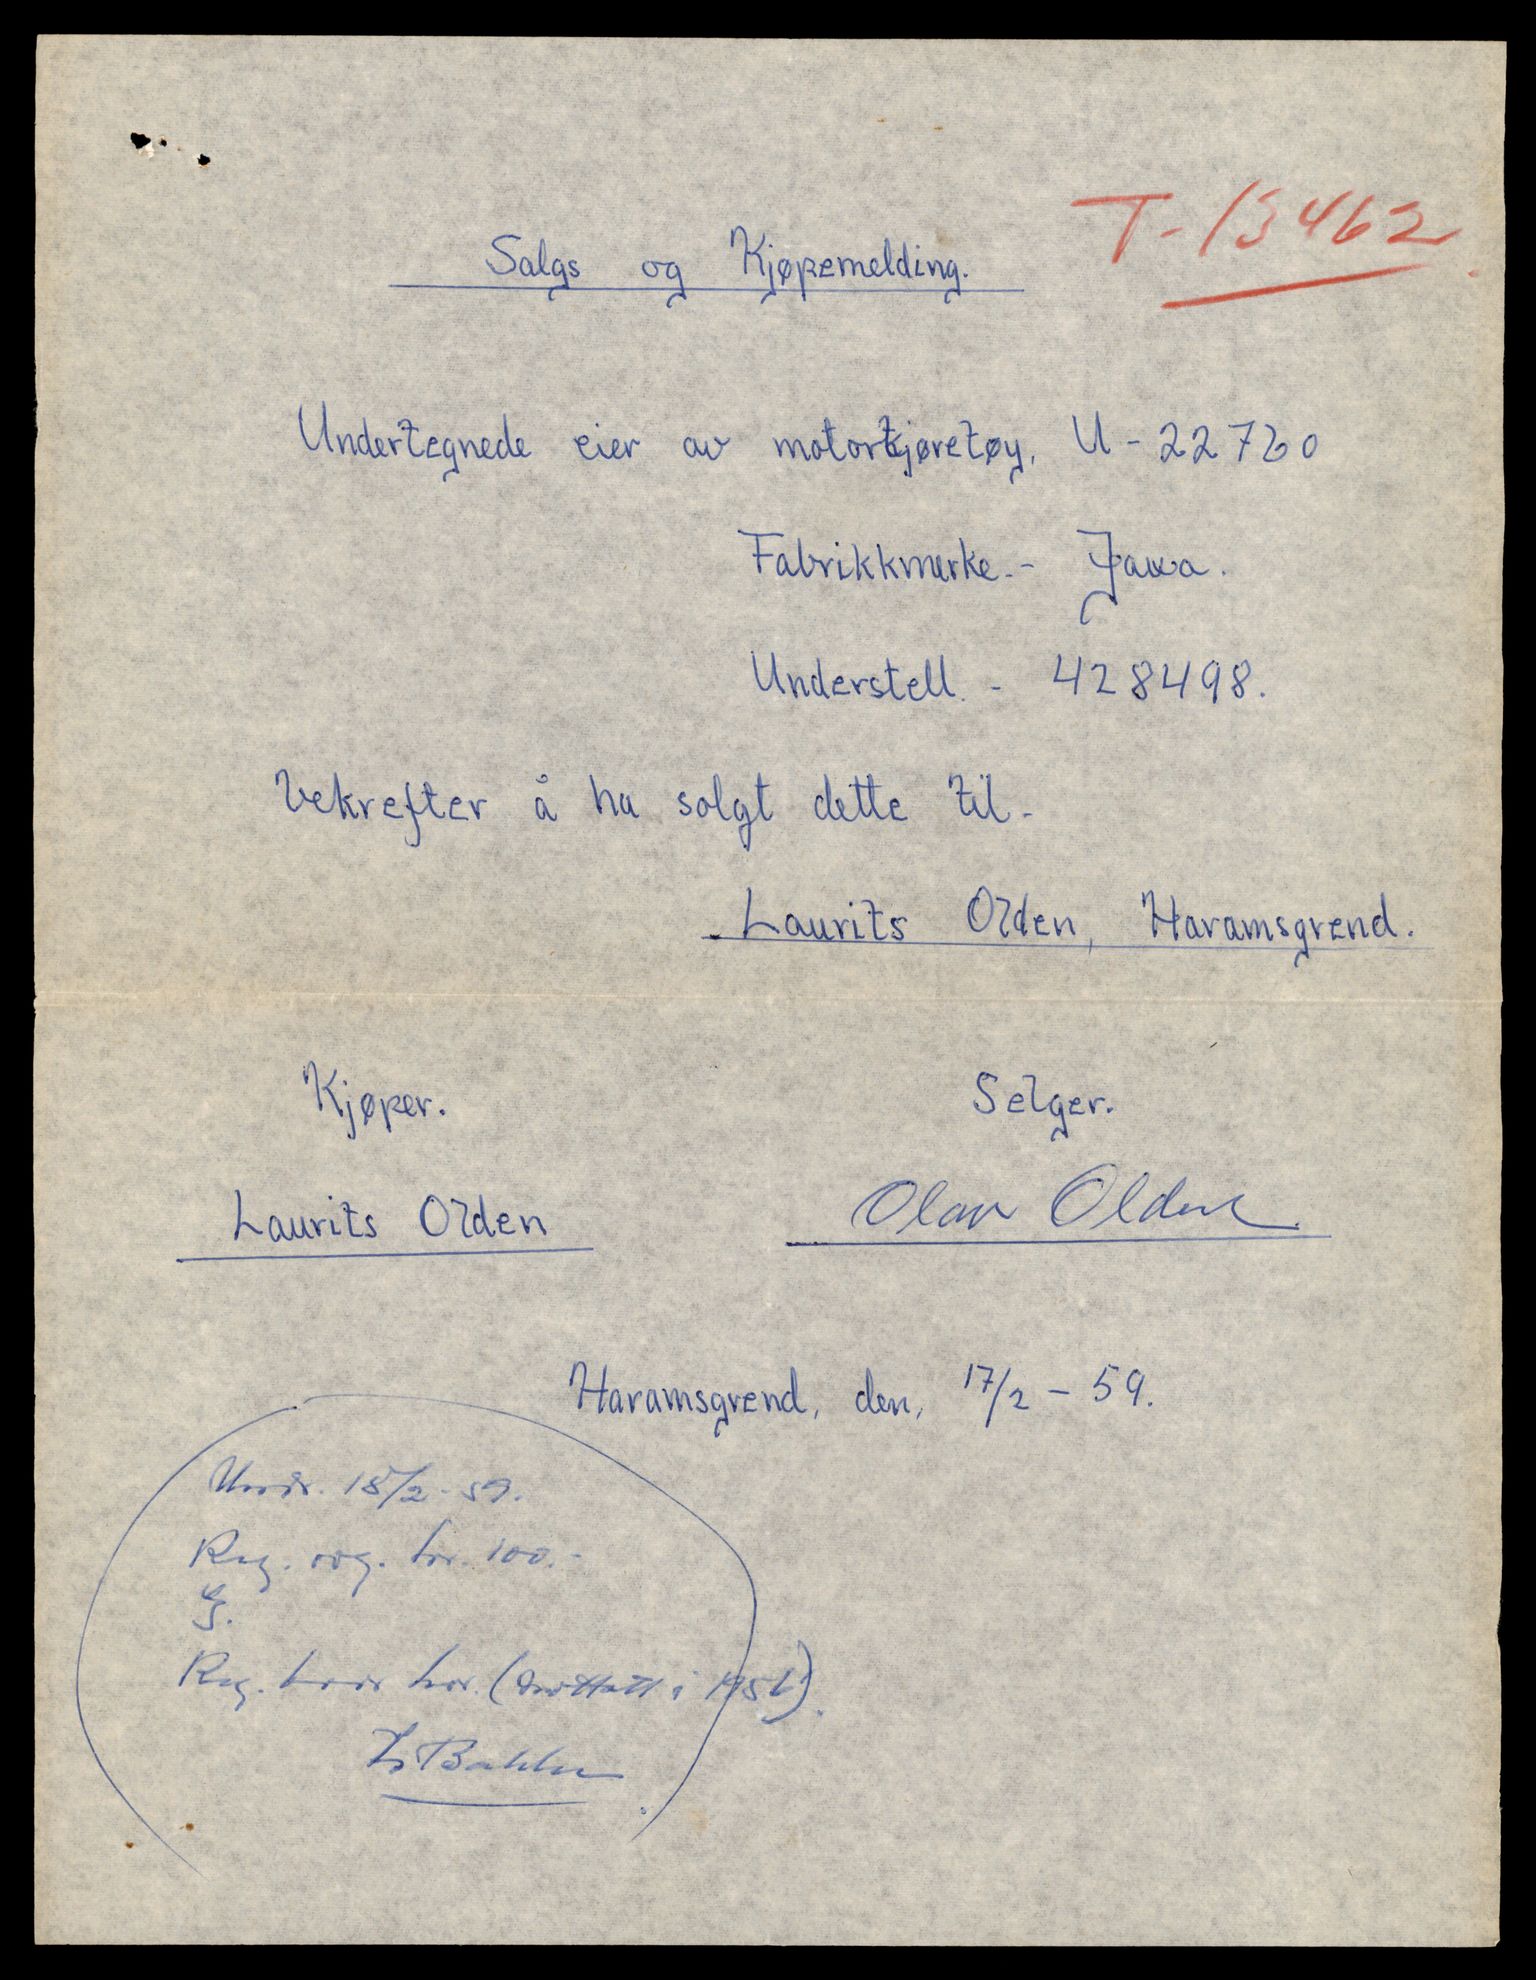 T-13462
Salgs og Kjøpemelding.
Undertegnede eier av motorkjøretøy, U-22760
Fabrikkmerke.- Jawa.
Understell. - 428498.
bekrefter å ha solgt dette til-
Laurits Olden, Haramsgrend.
Kjøper.
Selger.
Laurits Olden
Olav Olden
Haramsgrend, den, 17/2 - 59.
Vurdr. 18/2-59.
Reg. avg. kr. 100.-
Reg. (innsatt i 1956).